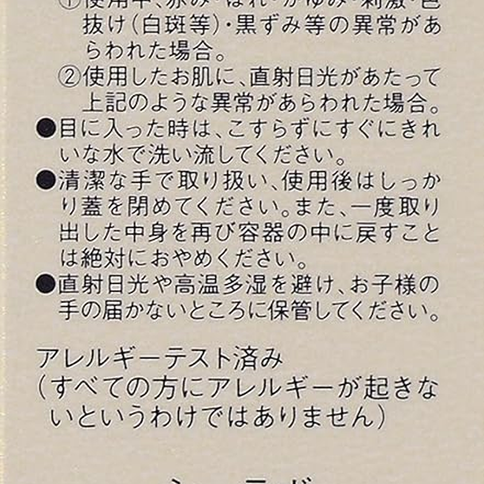 ①使用中、赤み・はれ・かゆみ・刺激・色
抜け(白斑等)・黒ずみ等の異常があ
らわれた場合。
②使用したお肌に、直射日光があたって
上記のような異常があらわれた場合。
●目に入った時は、こすらずにすぐにきれ
いな水で洗い流してください。
●清潔な手で取り扱い、使用後はしっか
り蓋を閉めてください。また、一度取り
出した中身を再び容器の中に戻すこと
は絶対におやめください。
●直射日光や高温多湿を避け、お子様の
手の届かないところに保管してください。
アレルギーテスト済み
(すべての方にアレルギーが起きな
いというわけではありません)